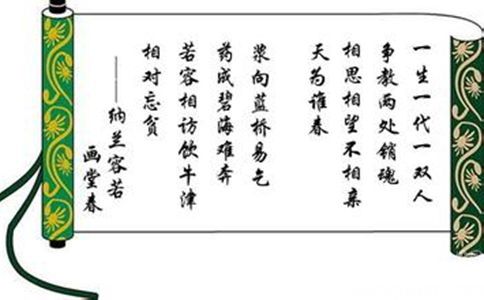 一生一代一双人
争教两处销魂
相思相望不相亲
天为谁春
浆向蓝桥易乞
药成碧海难奔
若容相访饮牛津
相对忘贫
———纳兰容若
画堂春